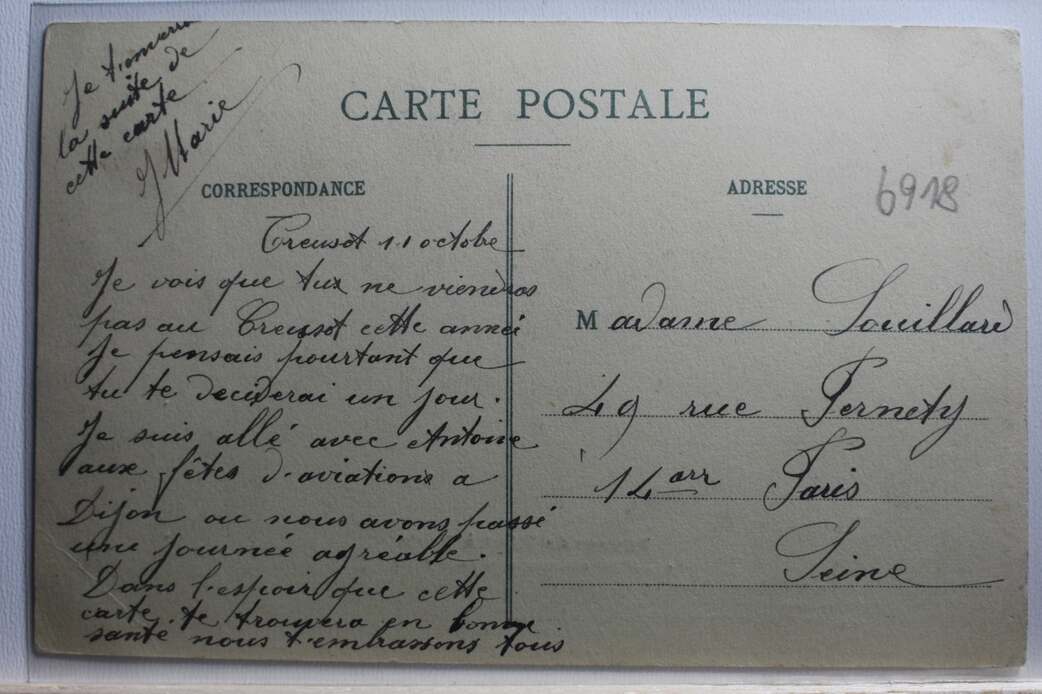 Je t'enverrai
la suite de
cette carte
Marie
CARTE POSTALE
CORRESPONDANCE
ADRESSE
6918
Creusot 11 octobre
Je vois que tux ne viendras
pas au Creusot cette année
Je pensais pourtant que
tu te deciderai un jour.
Je suis allé avec Antoine
aux fêtes d'aviations a
Dijon ou nous avons passé
une journée agréable.
Dans l'espoir que cette
carte te trouvera en bonne
santé nous t'embrassons tous
Madame Souillard
49 rue Pernety
14 arr Paris
Seine